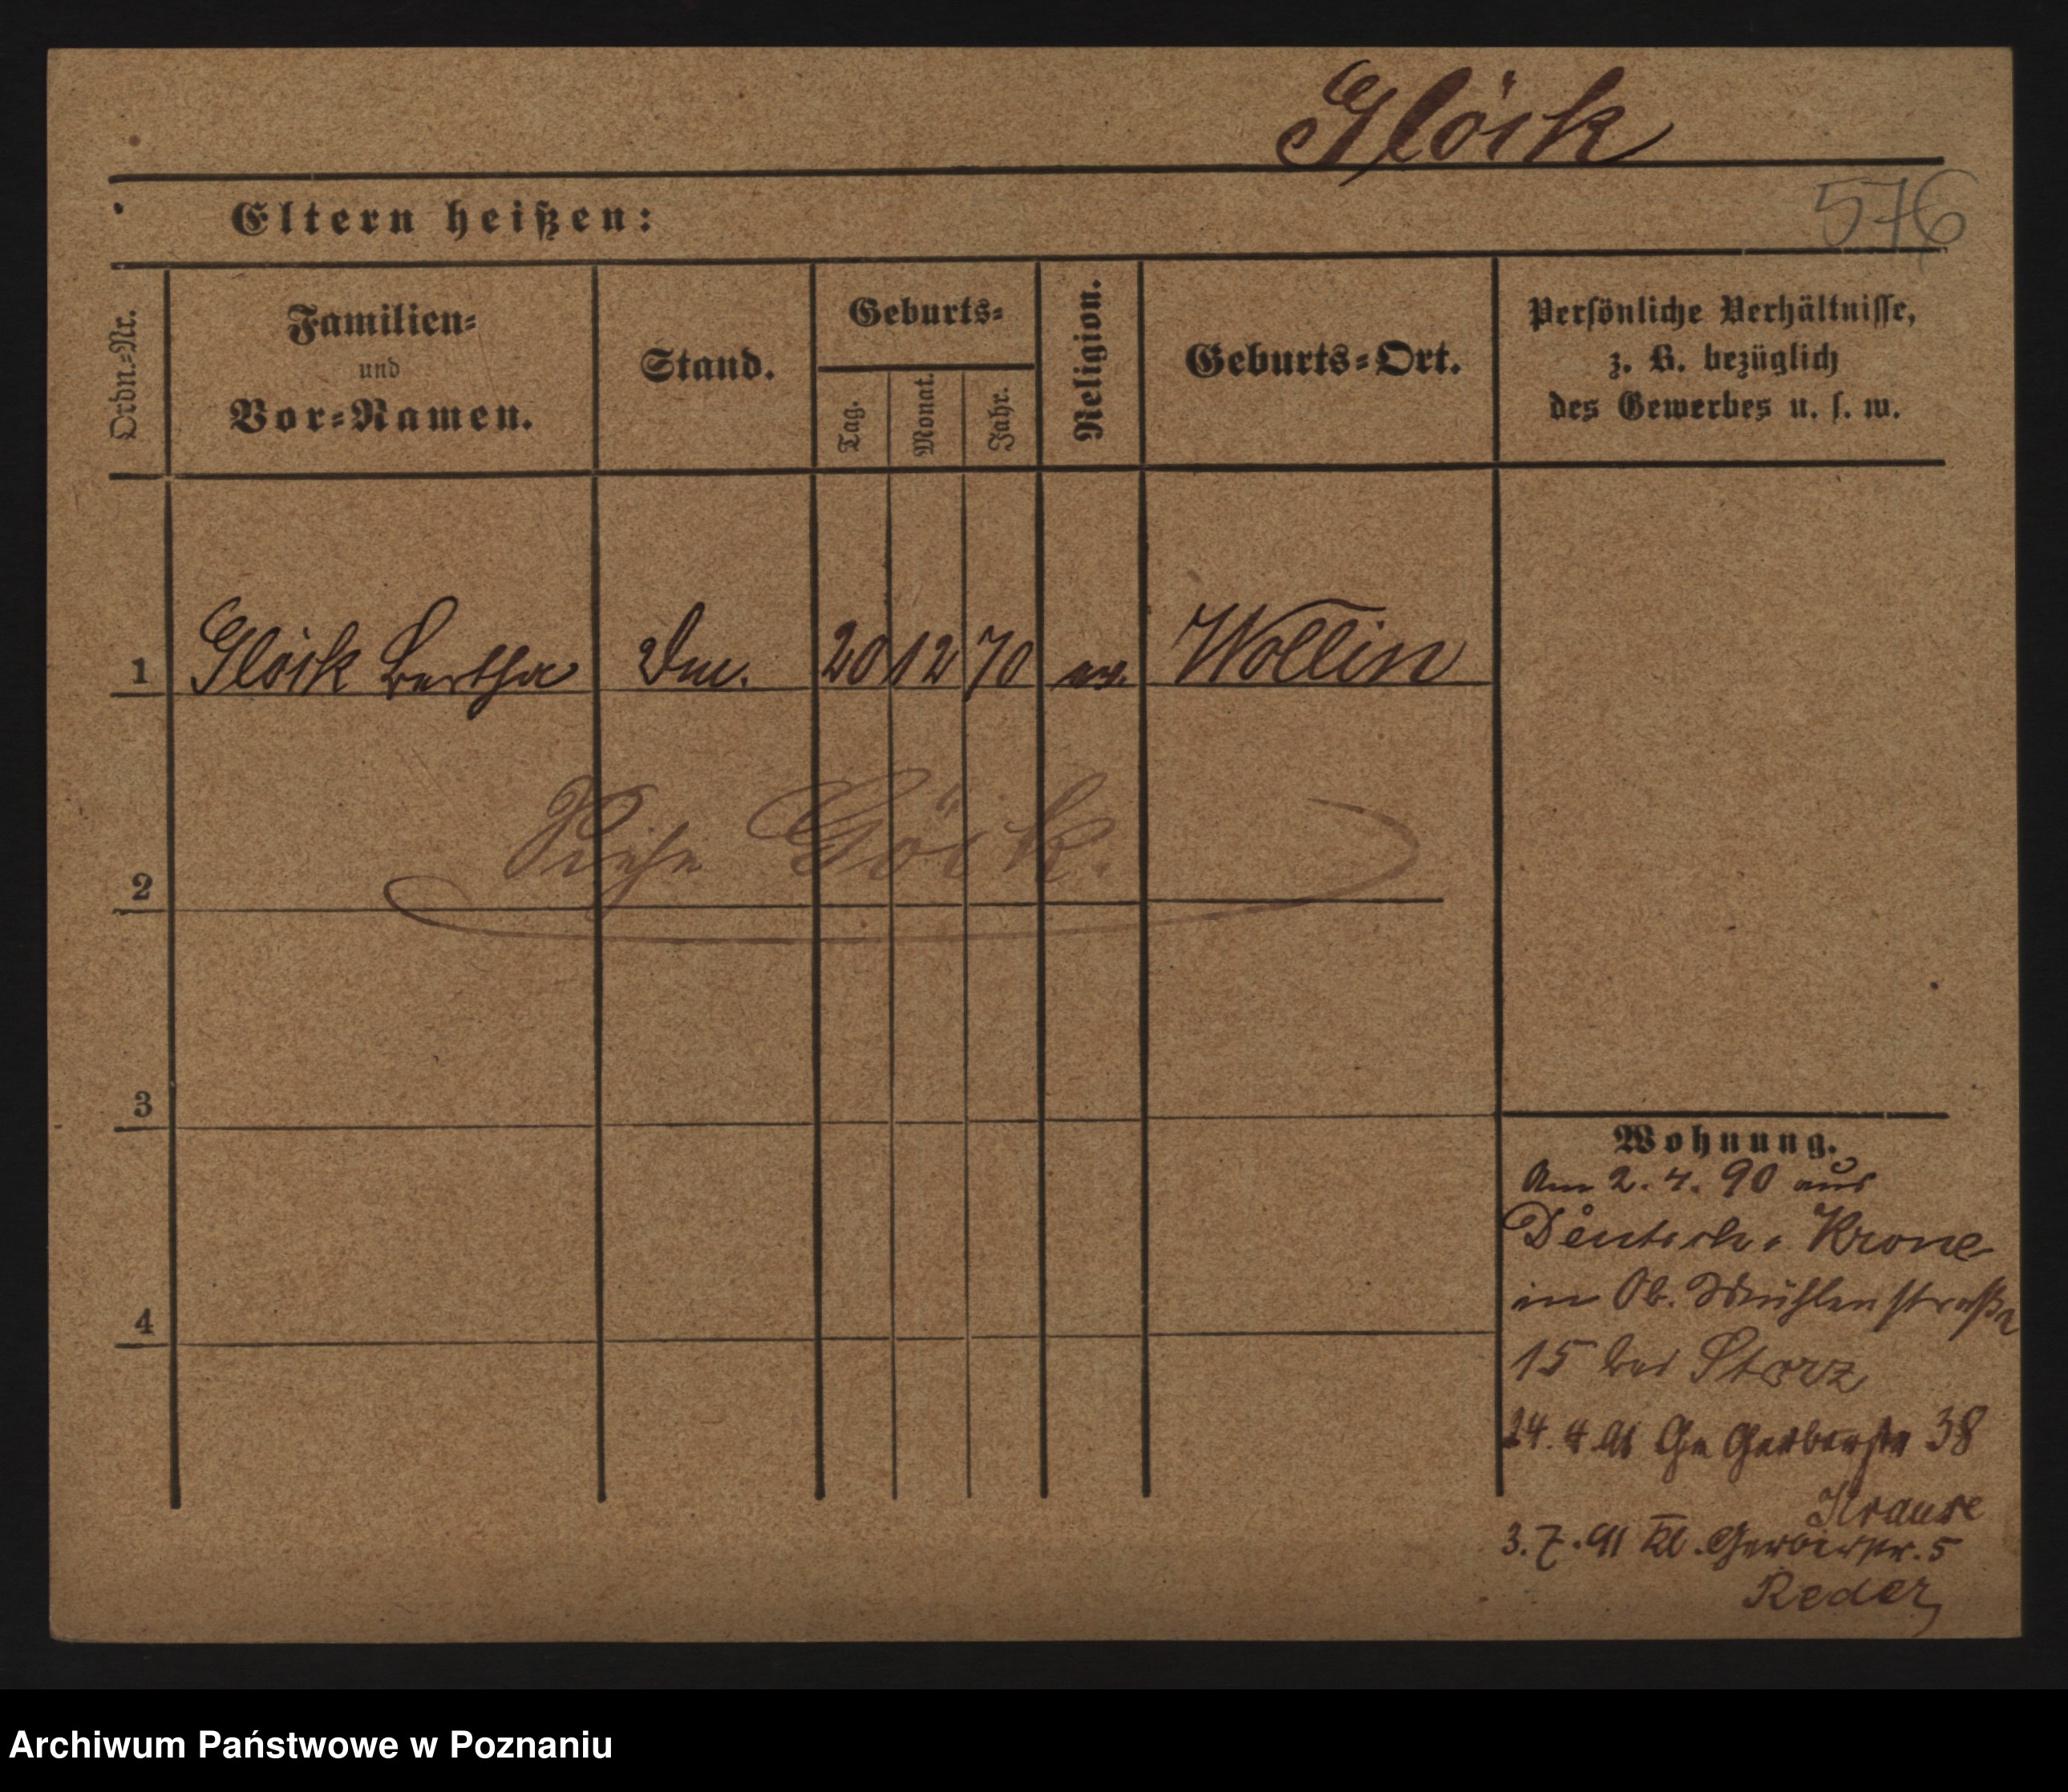 Glöck
576
Eltern heißen:
Ordn.-Nr.
Familien-
und
Vor-Namen.
Stand.
Geburts-
Tag.
Monat.
Jahr.
Religion.
Geburts-Ort.
Persönliche Verhältnisse,
z. B. bezüglich
des Gewerbes u. s. w.
1 Glöck Bertha 20 12 70 ev. Wollin
2 Siehe Göck.
3
4
Wohnung.
Am 2. 4. 90 aus
Deutsch. Krone
in Ob. Mühlenstraße
15 bei Storz
24. 4. 91 Gr Gerberstr 38
Krause
3. 7. 91 Kl. Gerberstr. 5
Reder
Archiwum Państwowe w Poznaniu